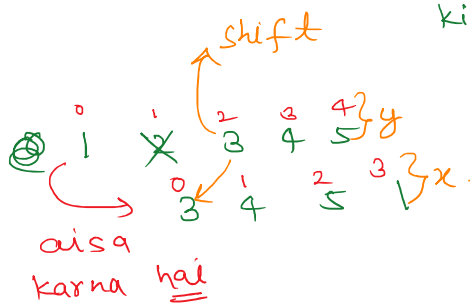 ki
shift
0 1 2 3 4
1 2 3 4 5 } y
0 1 2 3
3 4 5 1 } x
aisa
karna hai